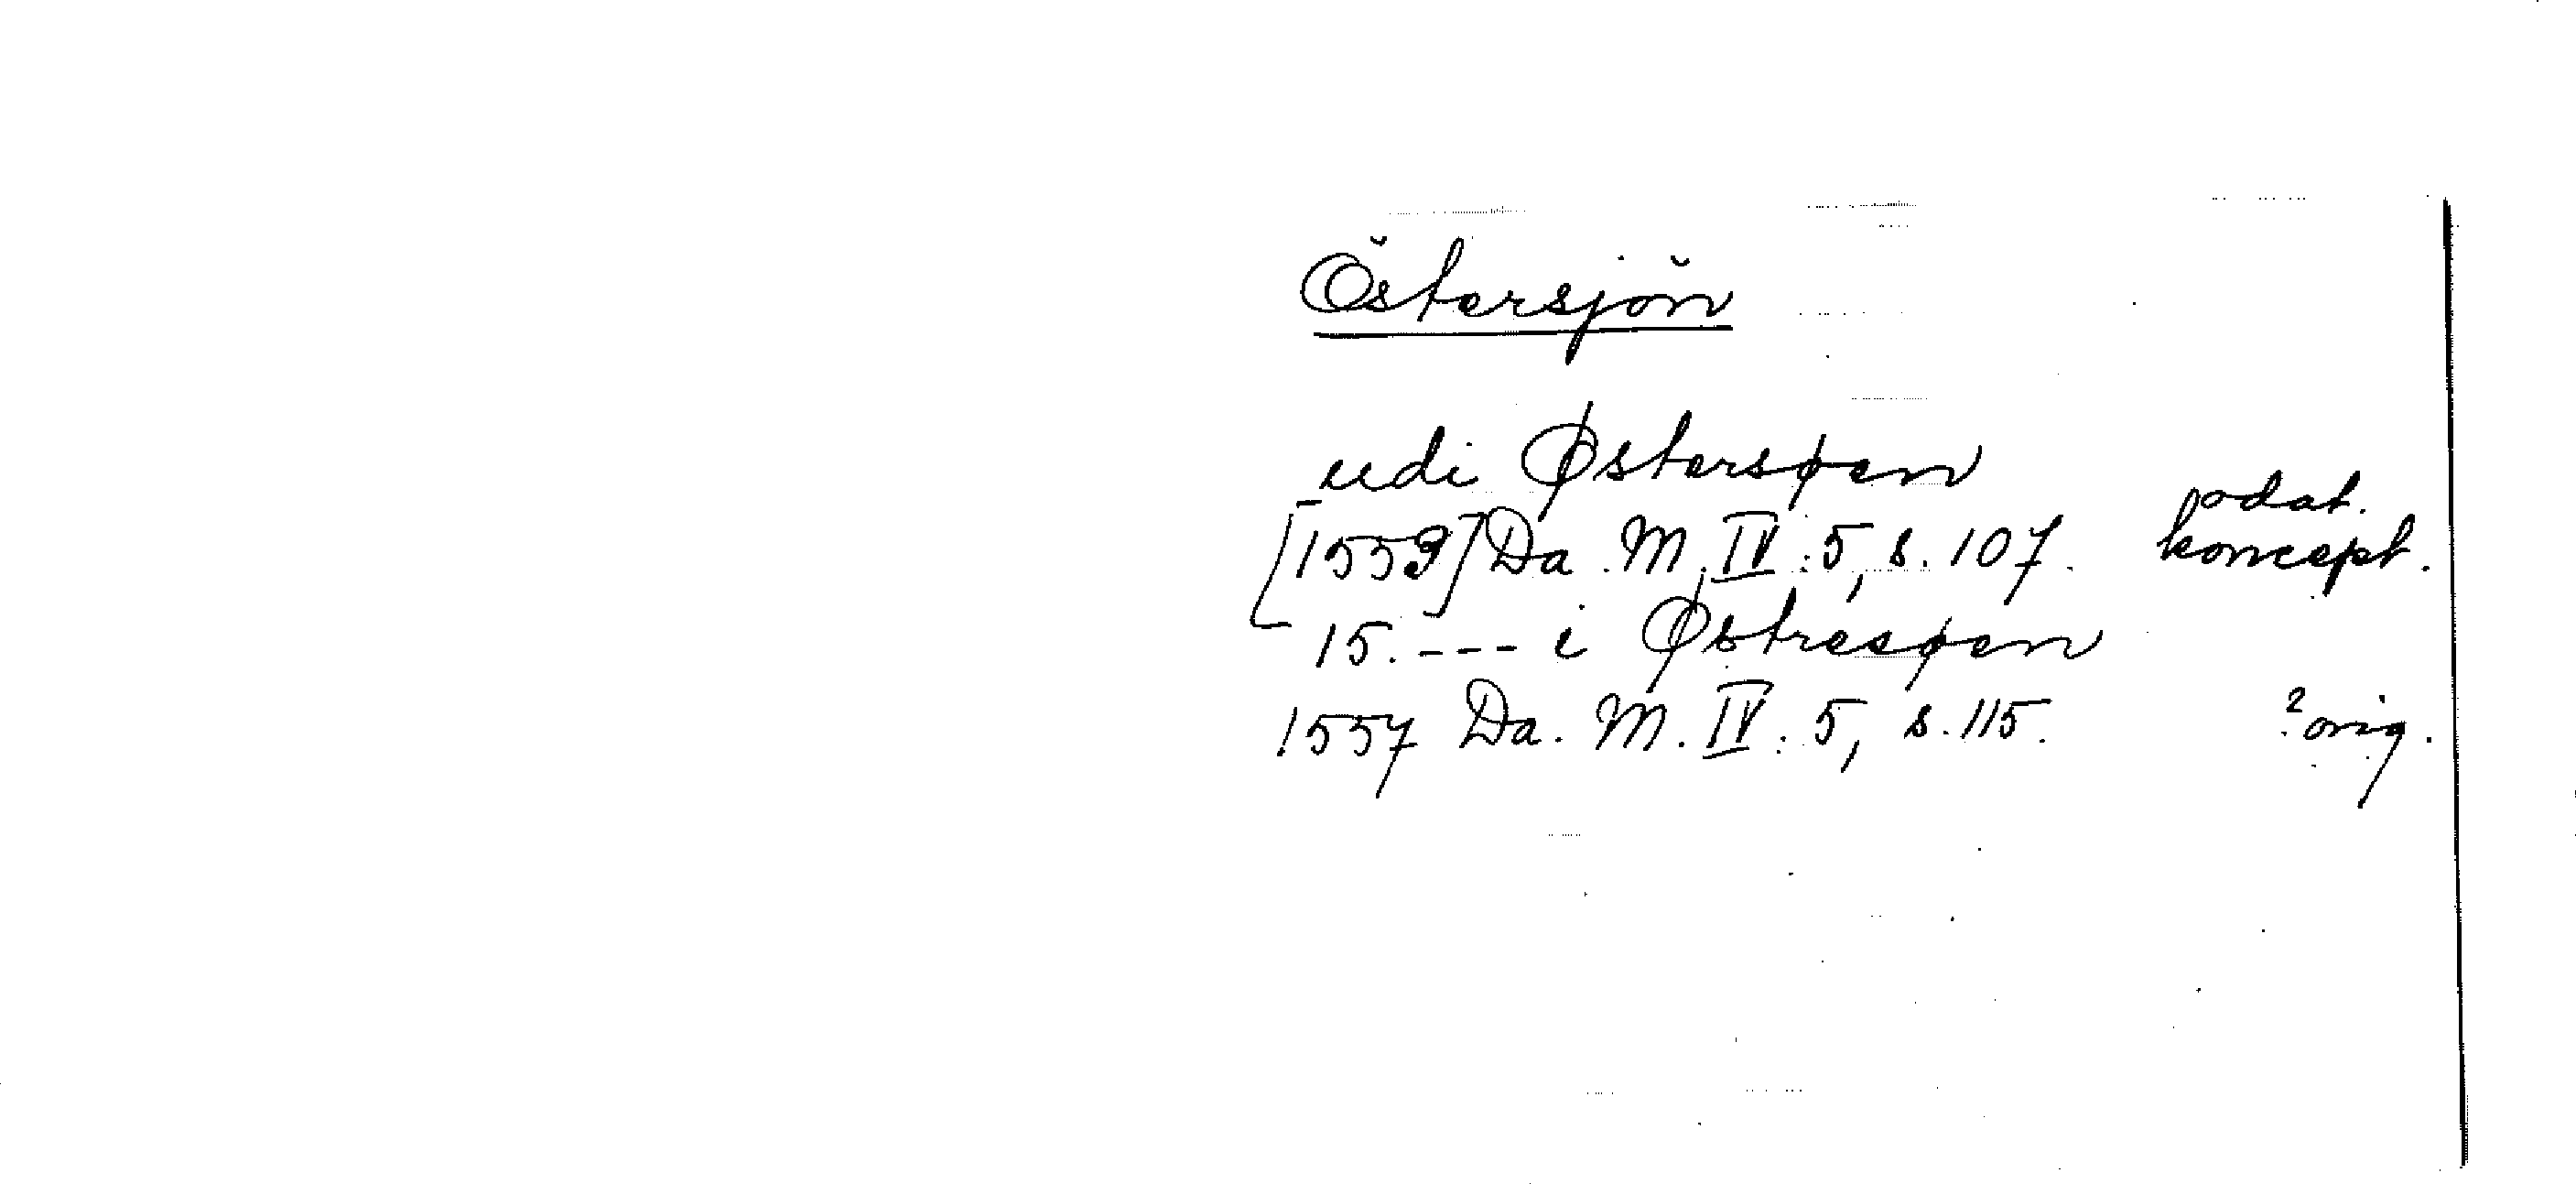 Östersjön
udi Østersøen
odat.
[1559] Da. M. IV:5, s. 107. koncept.
15. --- i Østresøen
1557 Da. M. IV:5, s. 115. ? orig.